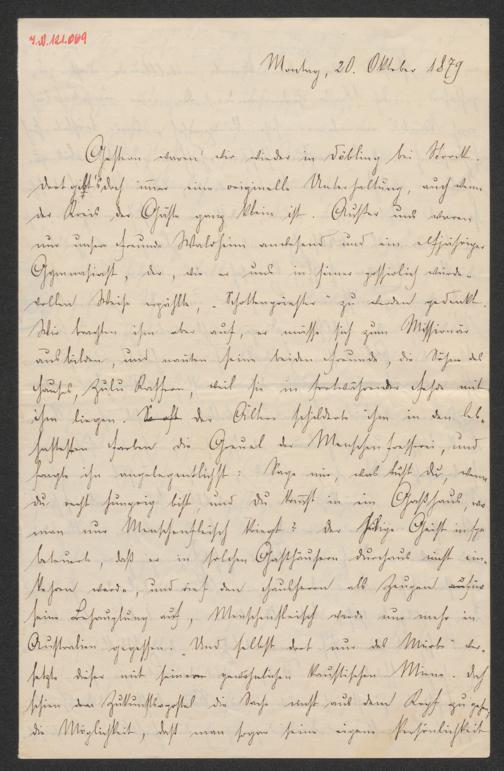 I.N. 121.069
Montag, 20. Oktober 1879
Gestern waren wir wieder in Döbling bei Storck.
Dort gibt's doch immer eine originelle Unterhaltung, auch wenn
der Kreis der Gäste ganz klein ist. Außer uns waren
nur unsere Freunde Waldheim anwesend und ein elfjähriger
Gymnasiast, der, wie er uns in seiner possirlich würde-
vollen Weise erzählte, „Schottenpriester" zu werden gedenkt.
Wir brachten ihm aber auf, er müsse sich zum Missionär
ausbilden, und nannten seine beiden Freunde, die Söhne des
Hauses, Zulu Kaffern, weil sie in fortwährender Fehde mit
ihm liegen. der Ältere schilderte ihm in den leb-
haftesten Farben die Greuel der Menschenfresserei, und
fragte ihn angelegentlichst: Sage mir, was thust Du, wenn
du recht hungrig bist, und Du kommst in ein Gasthaus, wo
man nur Menschenfleisch kriegt? der Geist
beteuerte, daß er in solchen Gasthäusern durchaus nicht ein-
kehren werde, und rief den Hausherrn als Zeugen
seine Behauptung auf, Menschenfleisch werde nur mehr in
Australien gegessen. Und selbst dort nur das Mürbe" ver-
setzte dieser mit seiner gewöhnlichen kaustischen Miene. Doch
schien dem Zukunftsapostel die Sache nicht aus dem Kopf zu gehen,
die Möglichkeit, daß man sogar seine eigene Persönlichkeit